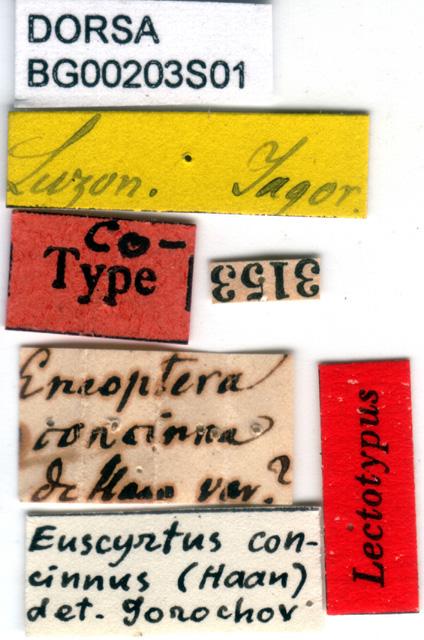 DORSA
BG00203S01
Luzon. Jagor.
Co-
Type
3153
Eneoptera
concinna
de Haan var.?
Lectotypus
Euscyrtus con-
cinnus (Haan)
det. Gorochov